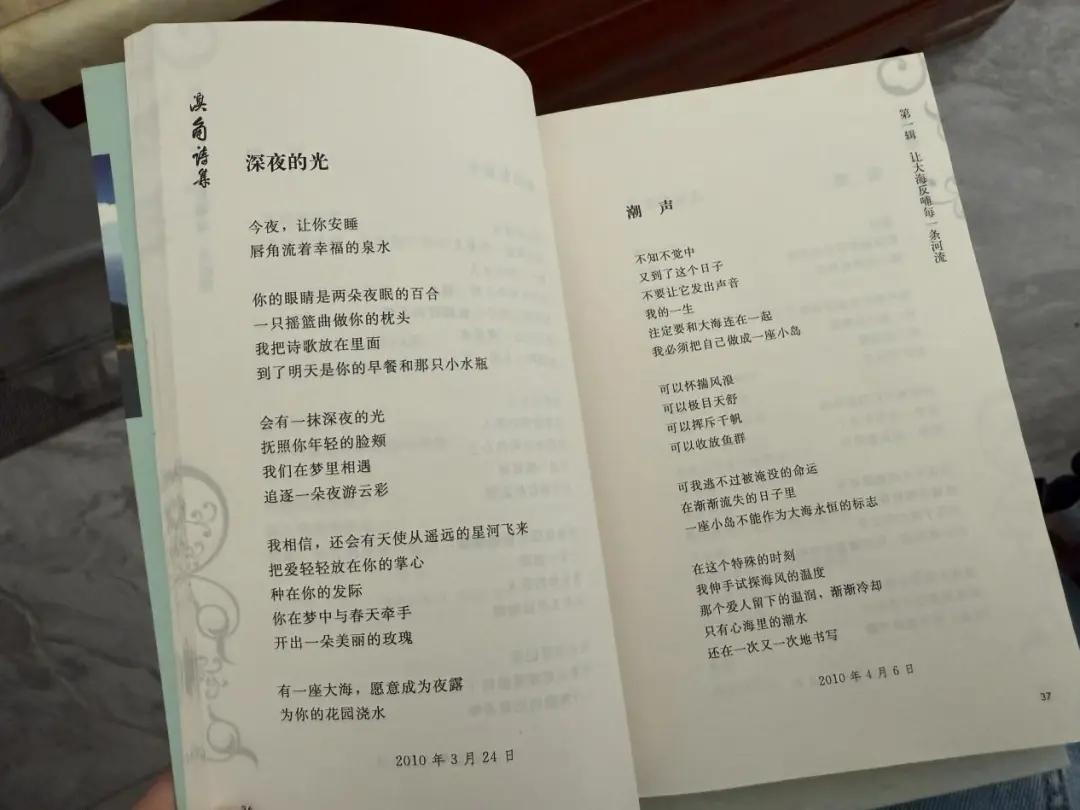 诗集
深夜的光
今夜，让你安睡
唇角流着幸福的泉水
你的眼睛是两朵夜眠的百合
一只摇篮曲做你的枕头
我把诗歌放在里面
到了明天是你的早餐和那只小水瓶
会有一抹深夜的光
抚照你年轻的脸颊
我们在梦里相遇
追逐一朵夜游云彩
我相信，还会有天使从遥远的星河飞来
把爱轻轻放在你的掌心
种在你的发际
你在梦中与春天牵手
开出一朵美丽的玫瑰
有一座大海，愿意成为夜露
为你的花园浇水
2010 年 3 月 24 日
第一辑 让大海反哺每一条河流
潮 声
不知不觉中
又到了这个日子
不要让它发出声音
我的一生
注定要和大海连在一起
我必须把自己做成一座小岛
可以怀揣风浪
可以极目天舒
可以挥斥千帆
可以收放鱼群
可我逃不过被淹没的命运
在渐渐流失的日子里
一座小岛不能作为大海永恒的标志
在这个特殊的时刻
我伸手试探海风的温度
那个爱人留下的温润，渐渐冷却
只有心海里的潮水
还在一次又一次地书写
2010 年 4 月 6 日
37